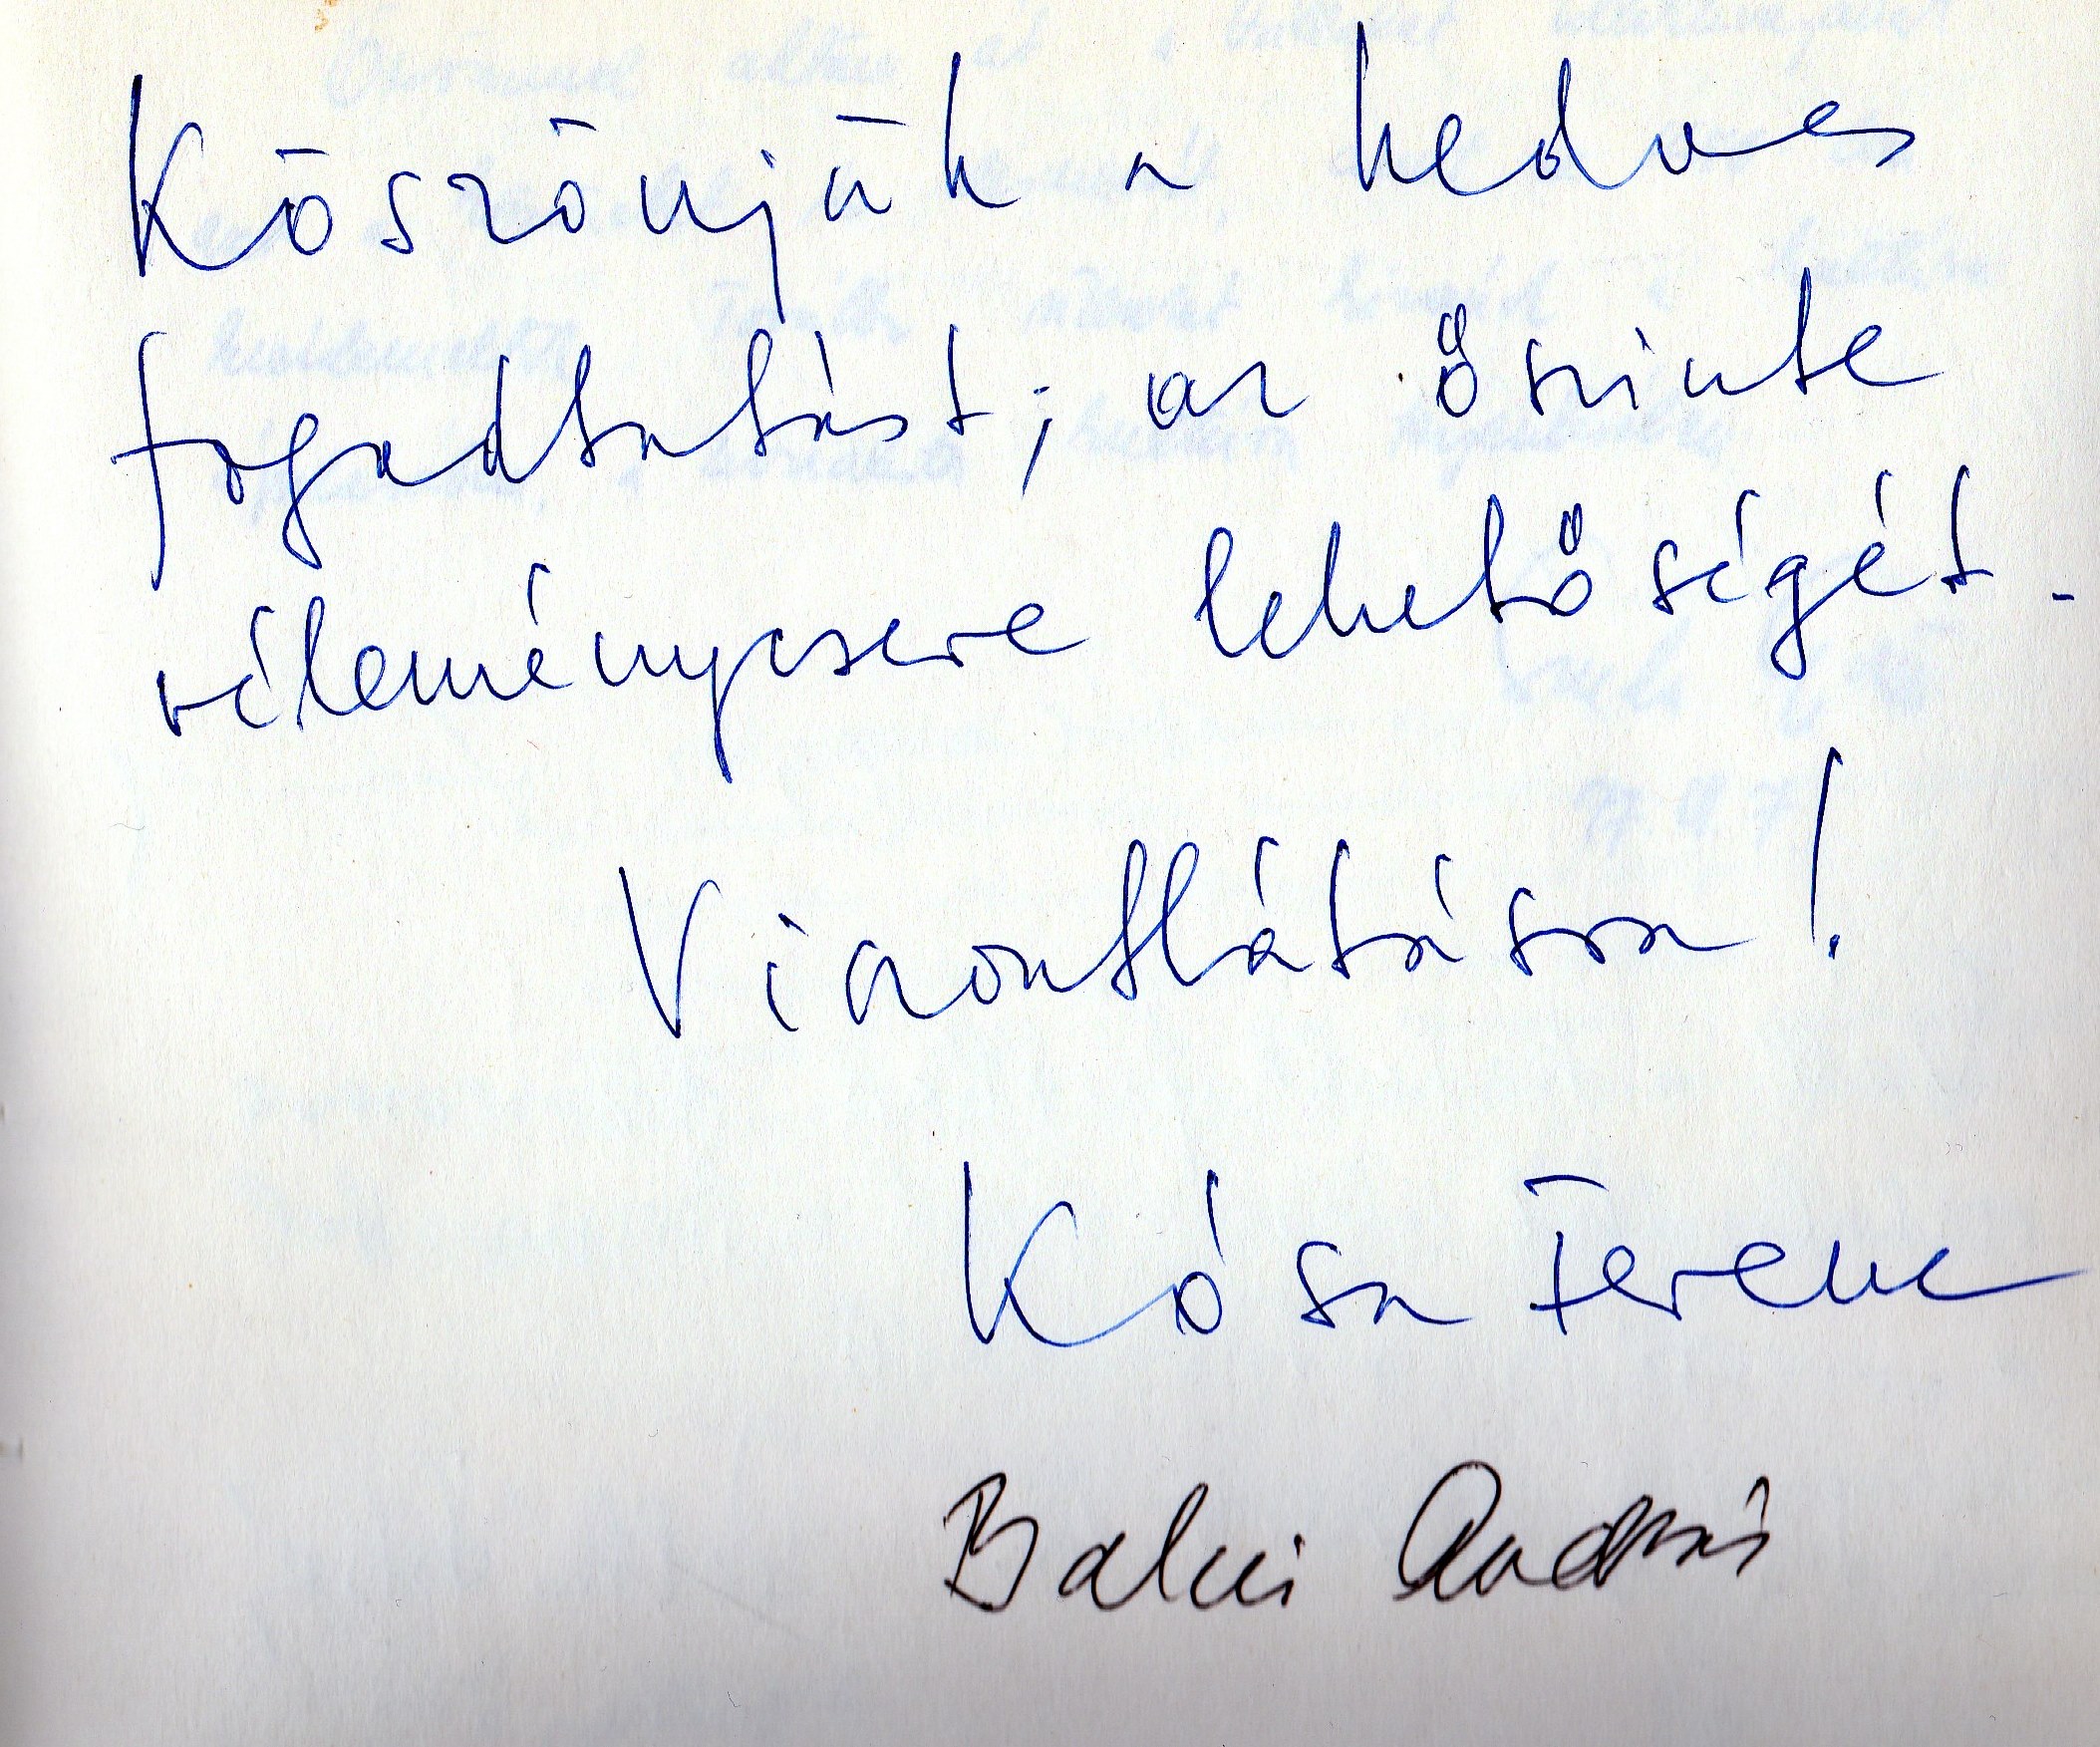 Köszönjük a kedves
fogadtatást, az őszinte
véleménycsere lehetőségét.
Viszontlátásra!
Kósa Ferenc
András